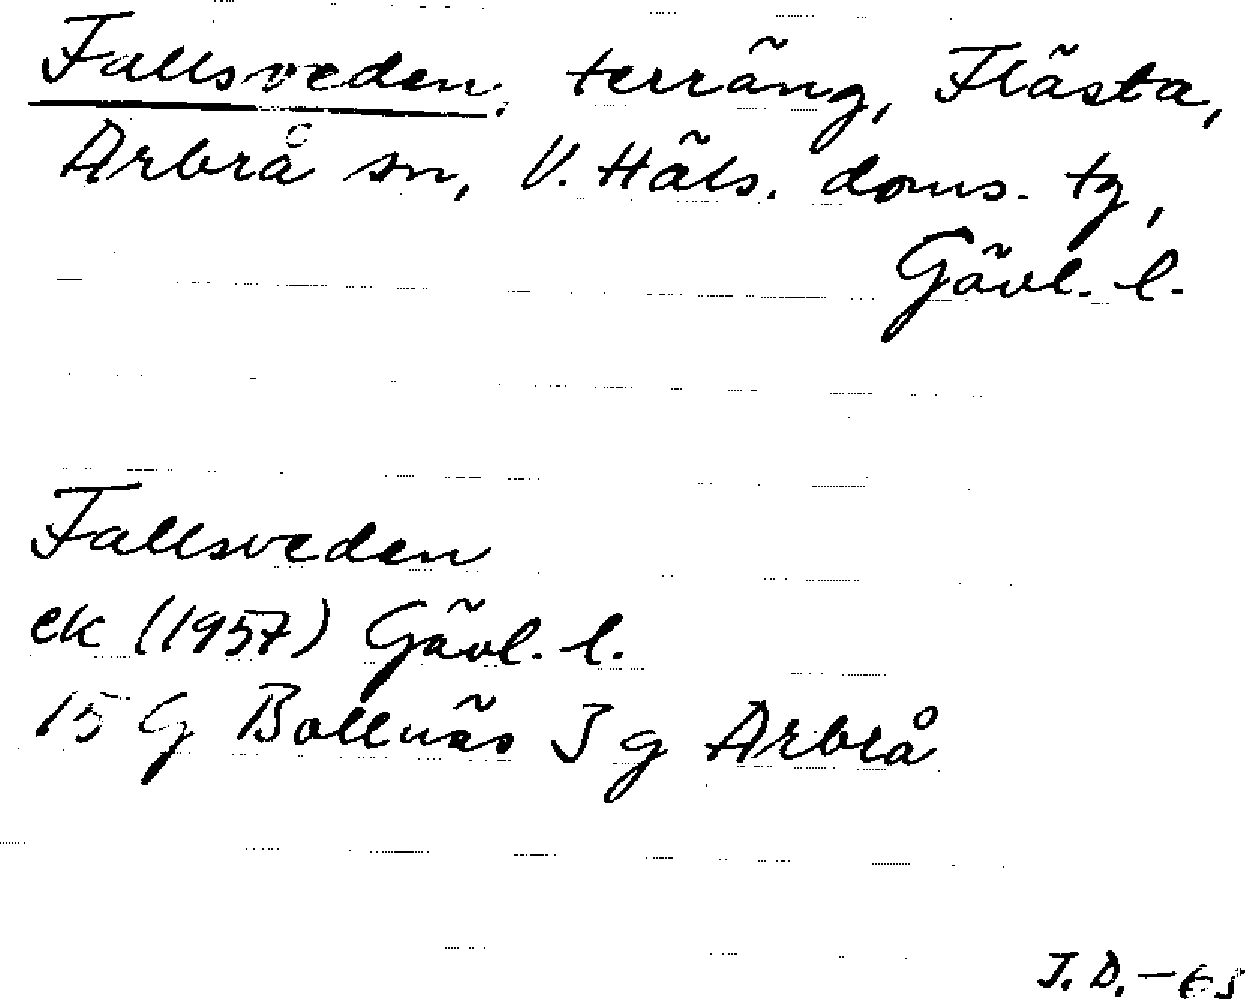 Fallsveden, terräng, Flästa,
Arbrå sn, V. Häls. doms. tg,
Gävl. l.
Fallsveden
ek (1957) Gävl. l.
15 G Bollnäs J g Arbrå
J. D. - 65